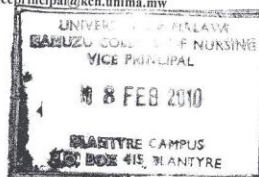 principal@kcn.unima.mw
UNIVERSITY OF MALAWI
KAMUZU COLLEGE OF NURSING
VICE PRINCIPAL
8 FEB 2010
BLANTYRE CAMPUS
BOX 415, BLANTYRE